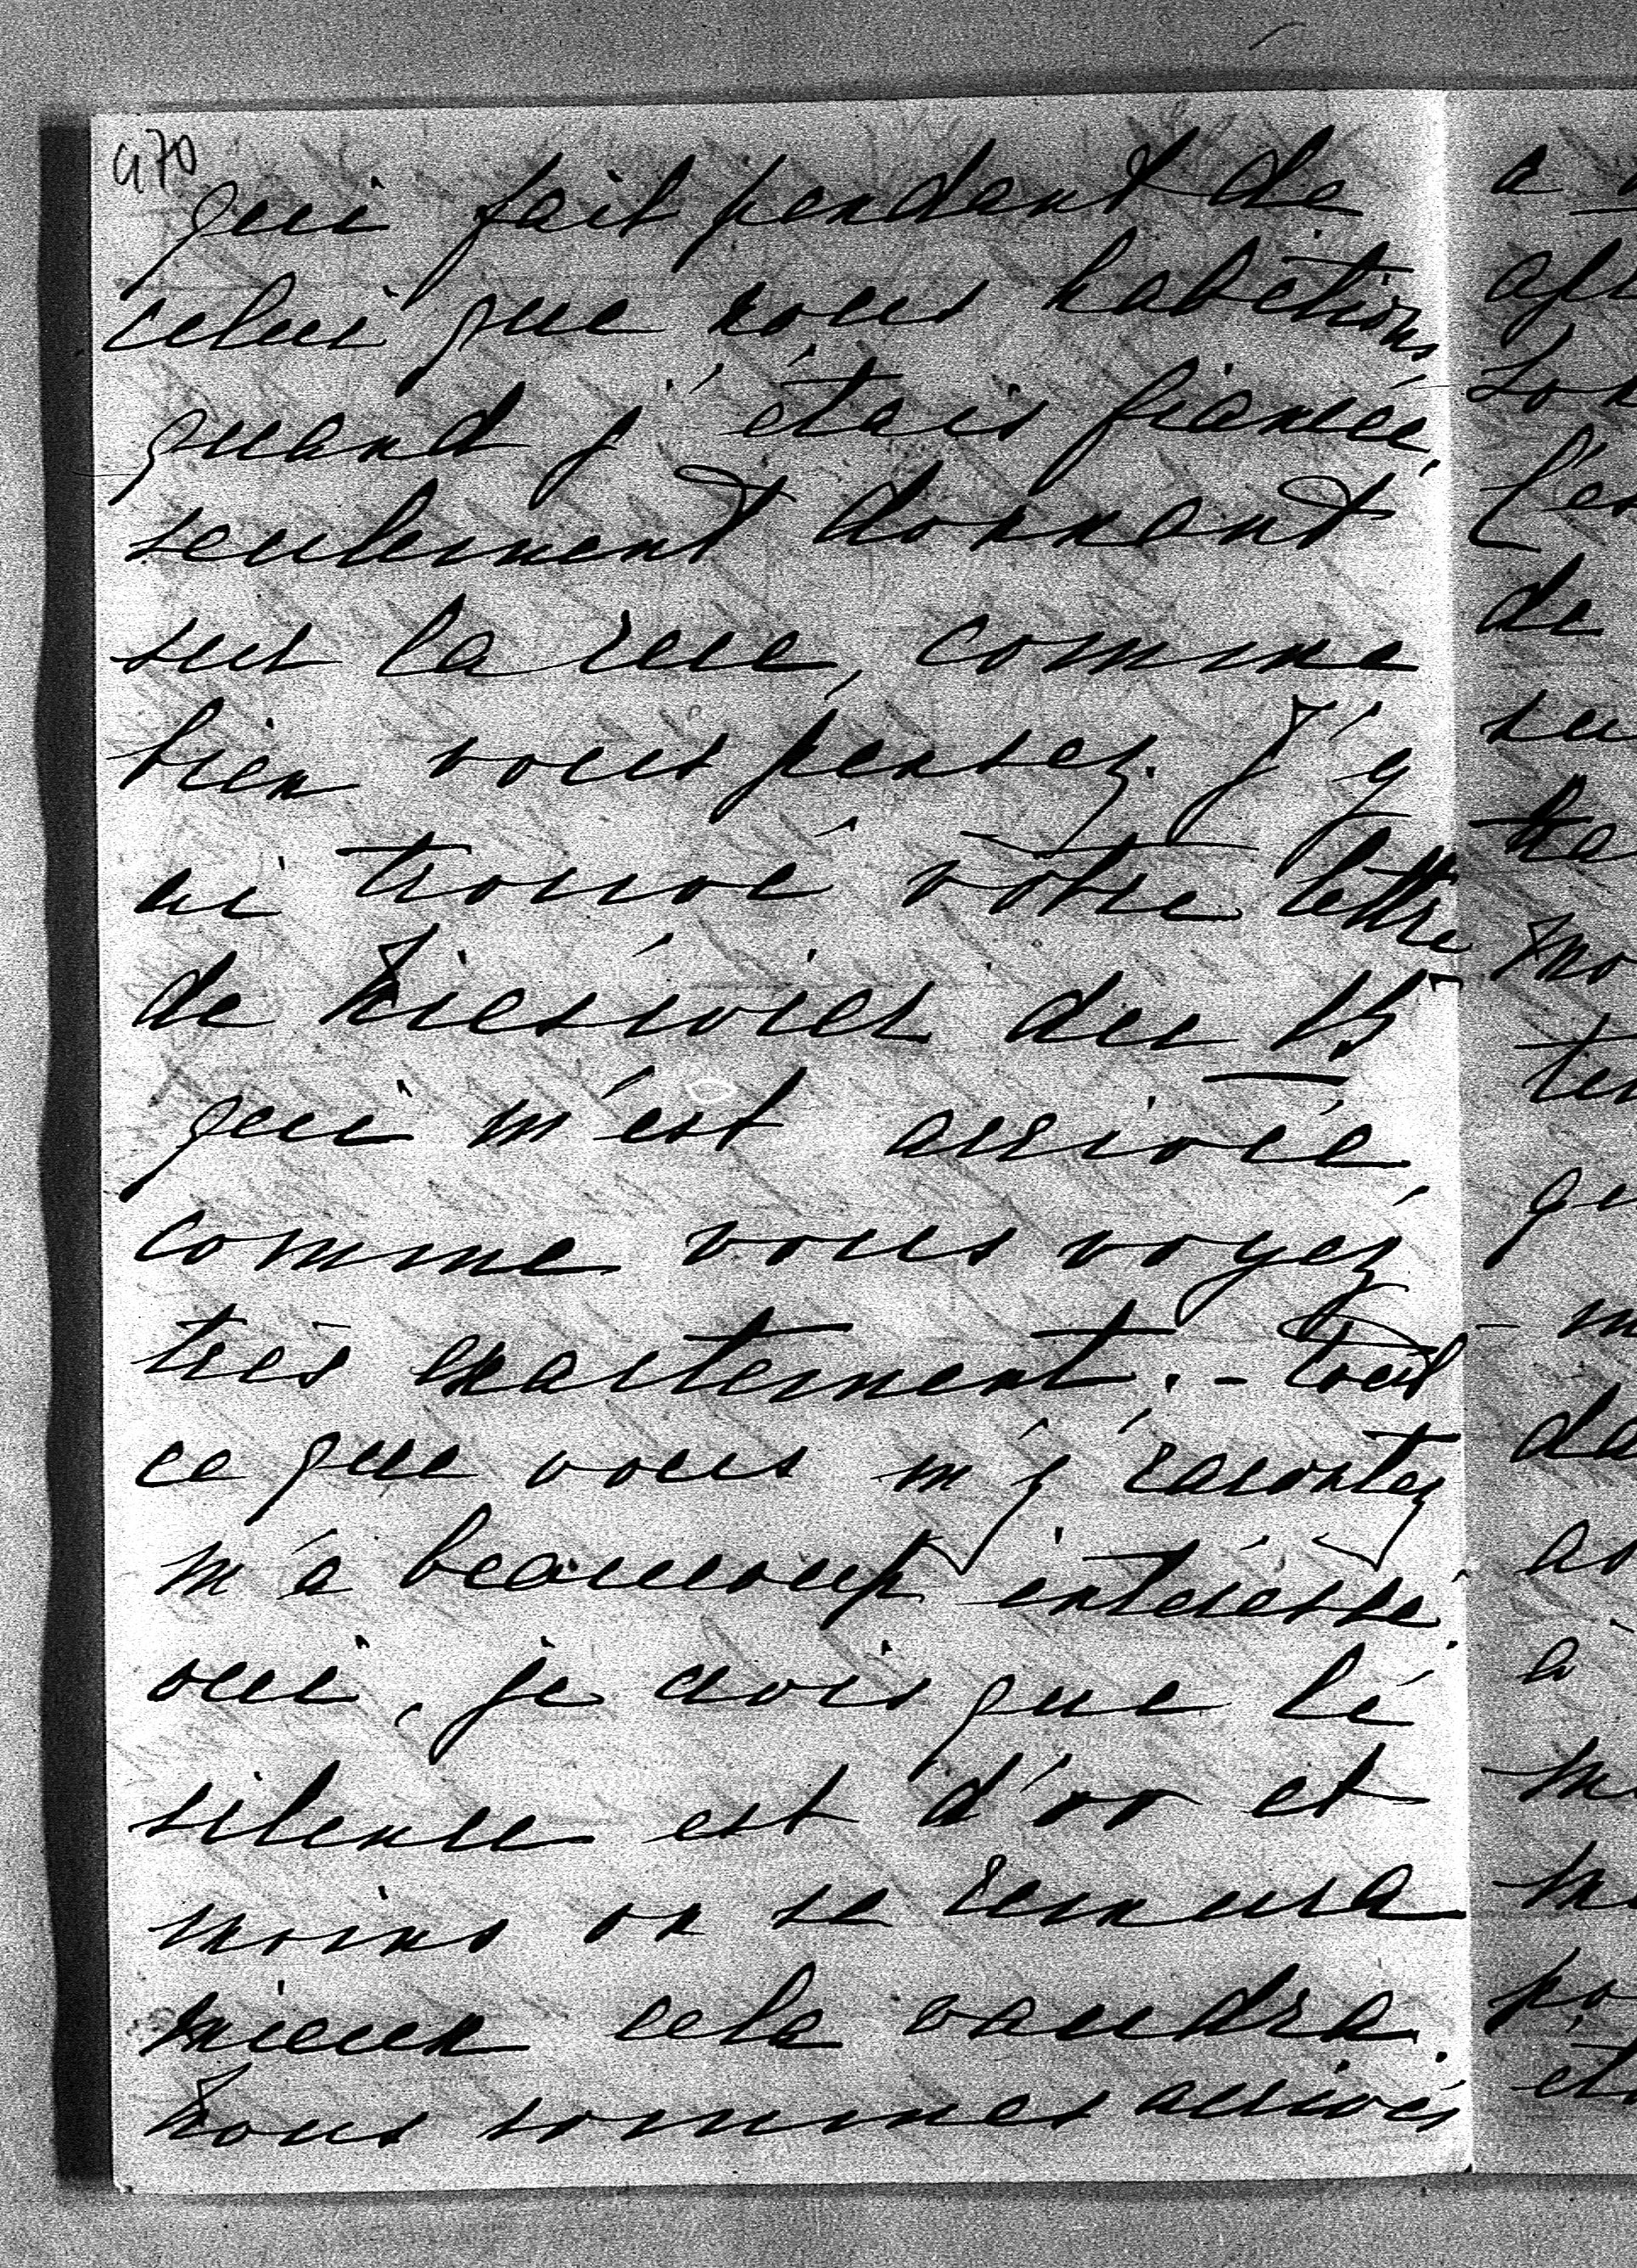 470
qui fait pendant de
celui que nous habitions
quand j'étais fiancée,
seulement donnant
sur la rue, comme
bien vous pensez. J'y
ai trouvé votre lettre
de Niesvier du 15
qui m'est arrivée
comme vous voyez
très exactement. - Tout
ce que vous m'y racontez
m'a beaucoup intéressé.
oui, je crois que le
silence est d'or et
moins on se remuera
mieux cela vaudra.
Nous sommes arrivés